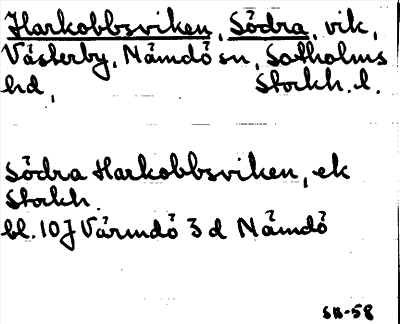 Harkobbsviken, Södra, vik,
Västerby, Nämdö sn, Sotholms
hd, Stockh. l.
Södra Harkobbsviken, ek
Stockh.
bl. 10J Värmdö 3d Nämdö
SH-58